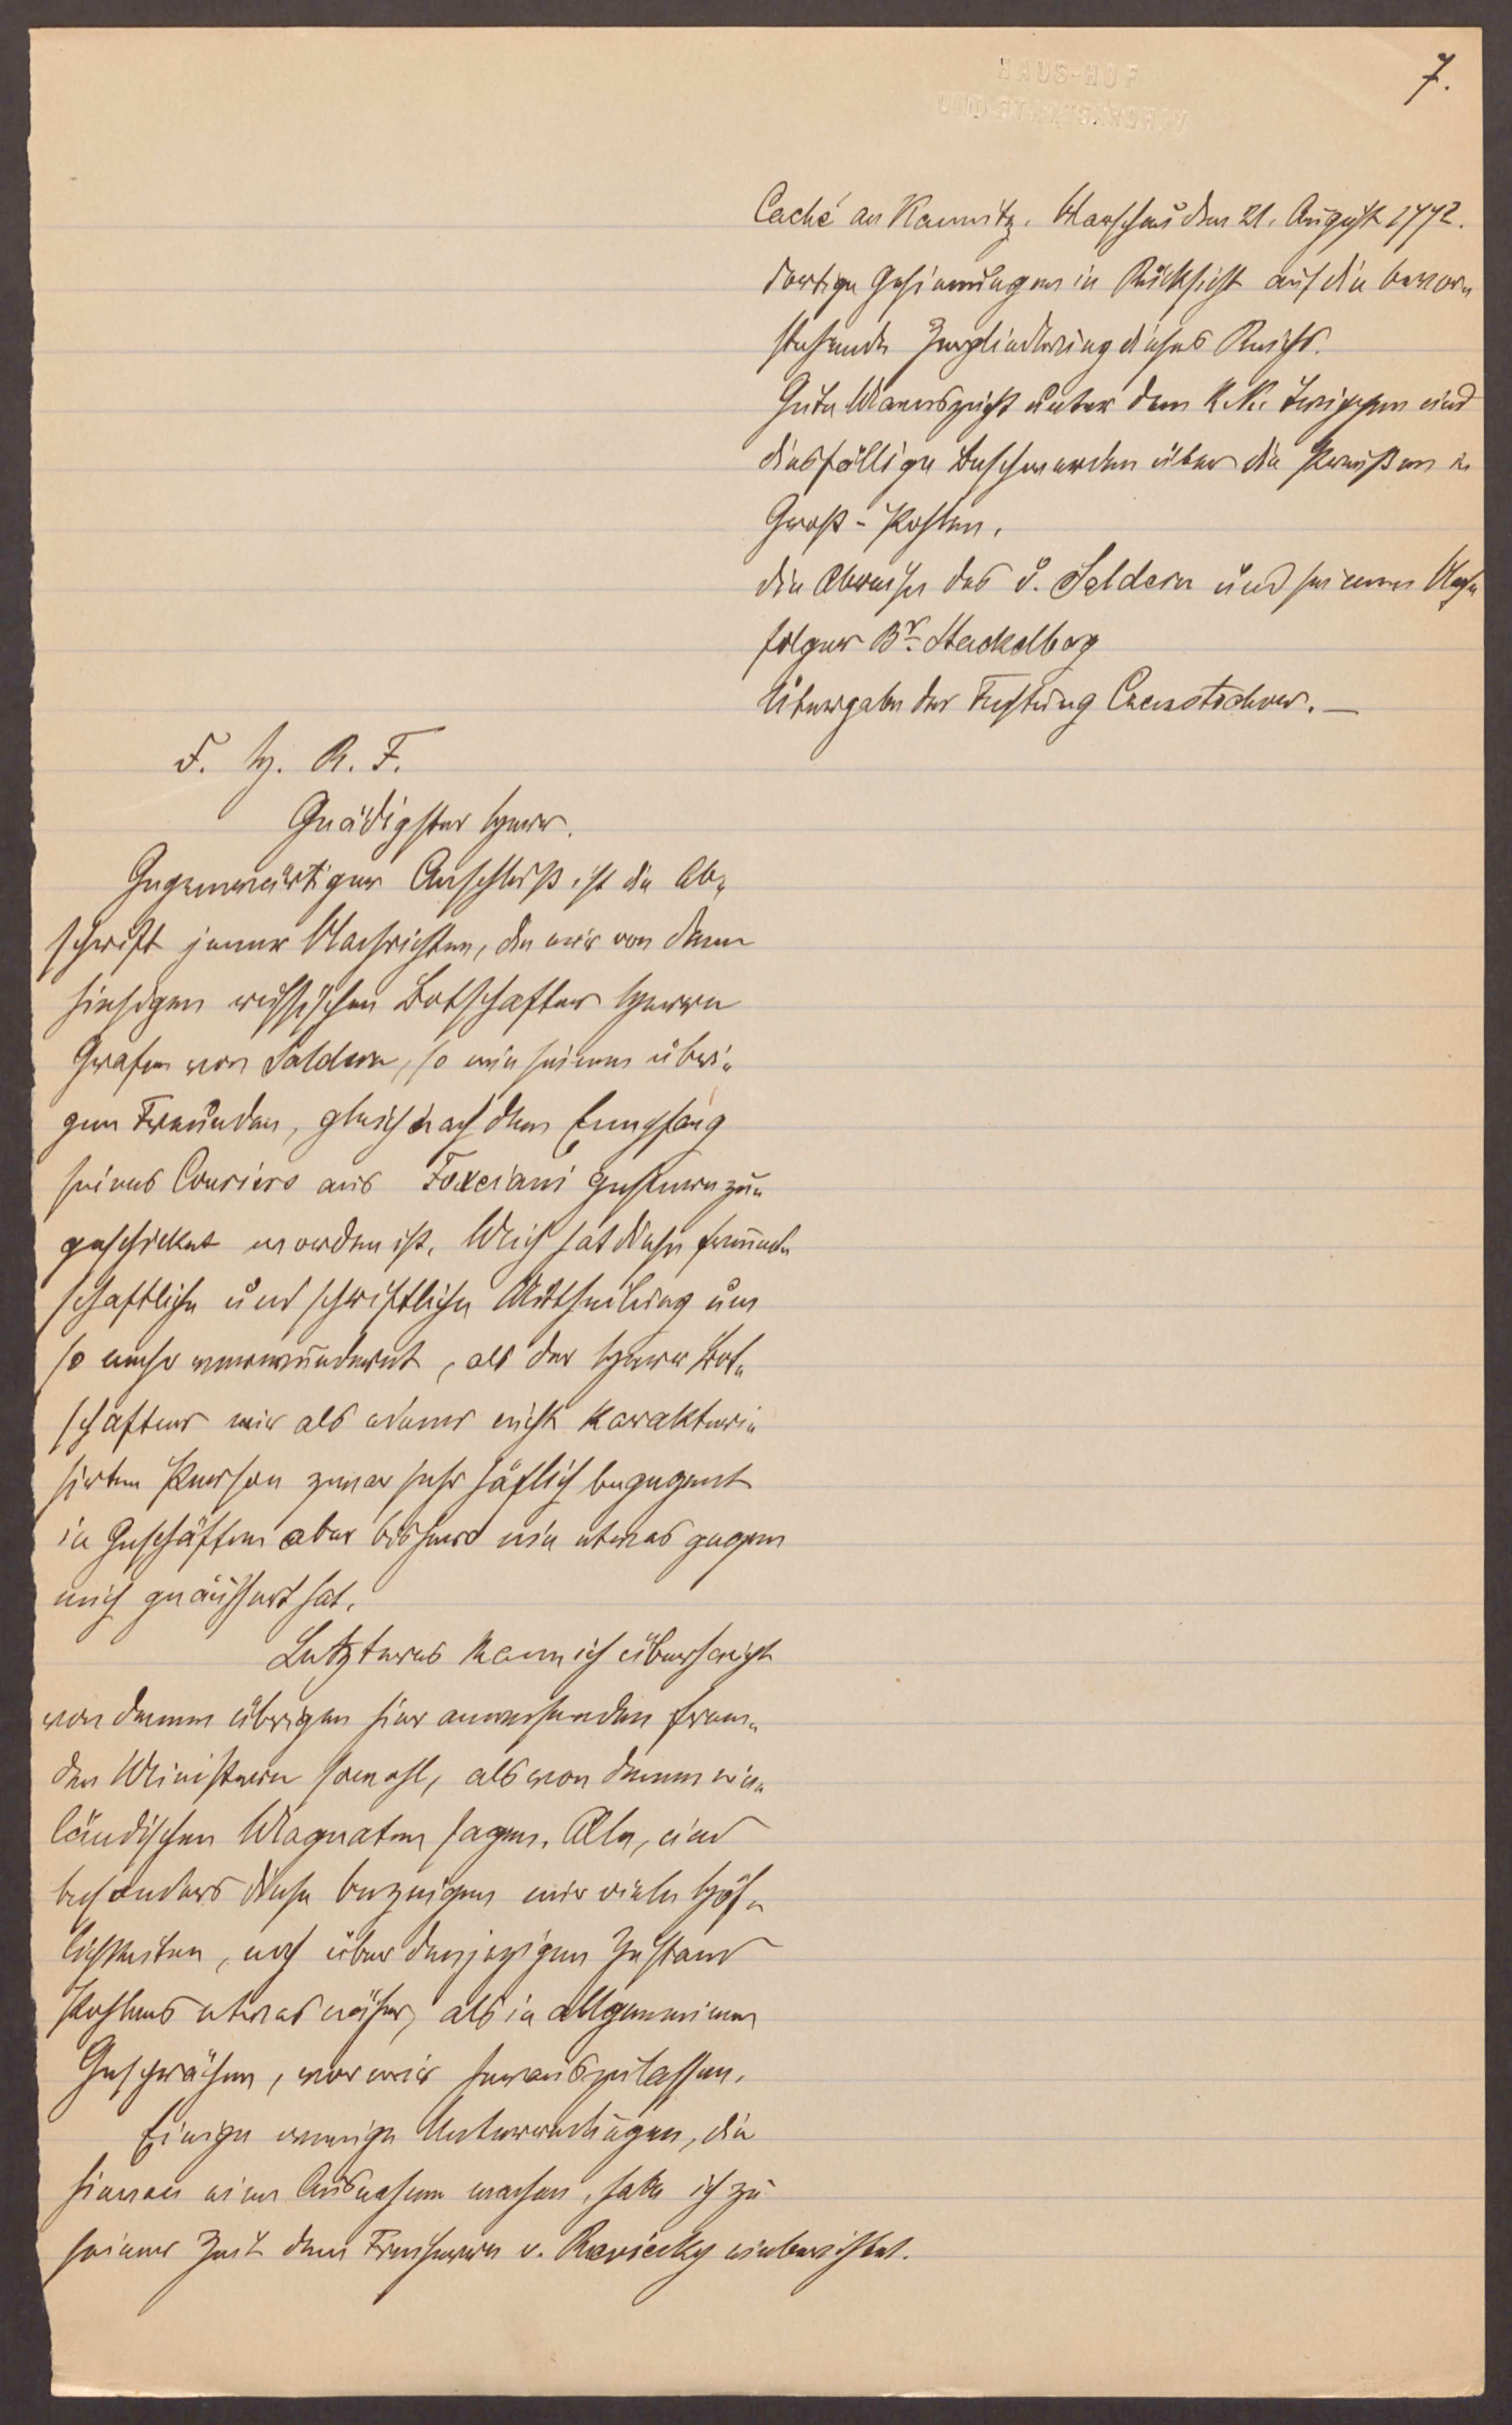 HAUS-HOF
UND STAATSARCHIV
7.
Caché an Kaunitz. Warschau den 21. August 1772.
dortige Gesinnungen in Rücksicht auf die bevor„
stehende Zergliederung dieses Reichs.
Gute Manneszucht unter den K.K. Truppen und
diesfällige Beschwerden über die Preußen in
Groß-Pohlen.
die Abreise des v. Saldern und seinen Nach„
folger Br. Stackelberg
Übergabe der Festung Czenstochow. —
F. H. R. F.
Gnädigster Herr.
Gegenwärtiger Anschluß ist die Ab„
schrift jener Nachrichten, die mir von dem
hiesigen russischen Botschafter Herrn
Grafen von Saldern, so wie seinen übri„
gen Freunden, gleich nach dem Empfang
seines Couriers aus Foxciani gestern zu„
geschicket worden ist. Mich hat diese freund„
schaftliche und schriftliche Mittheilung um
so mehr verwundert, als der Herr Bot„
schafter mir als einer nicht karakteri„
sirten Person zwar sehr höflich begegnet
in Geschäften aber bisher nie etwas gegen
mich geäussert hat.
Letzteres kann ich überhaupt
von denen übrigen hier anwesenden frem„
den Ministern sowohl, als von denen in„
ländischen Magnaten sagen. Alle, und
besonders diese bezeigen mir viele Höf„
lichkeiten, ohne über den jezigen Zustand
Pohlens etwas näher, als in allgemeinen
Gesprächen, vor mir herauszulassen.
Einige wenige Unterredungen, die
hievon eine Ausnahme machen, habe ich zu
seiner Zeit dem Freiherrn v. Reviczky einberichtet.